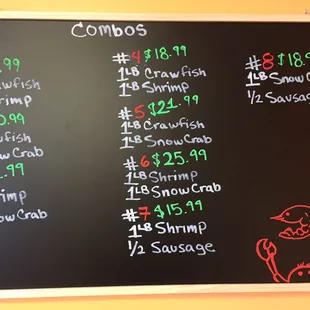 Combos
.99
wfish
rimp
0.99
wfish
ow Crab
.99
imp
ow Crab
#4 $18.99
1LB Crawfish
1LB Shrimp
#5 $21.99
1LB Crawfish
1LB Snow Crab
#6 $25.99
1LB Shrimp
1LB Snow Crab
#7 $15.99
1LB Shrimp
1/2 Sausage
#8 $18.9
1LB Snow C
1/2 Sausag